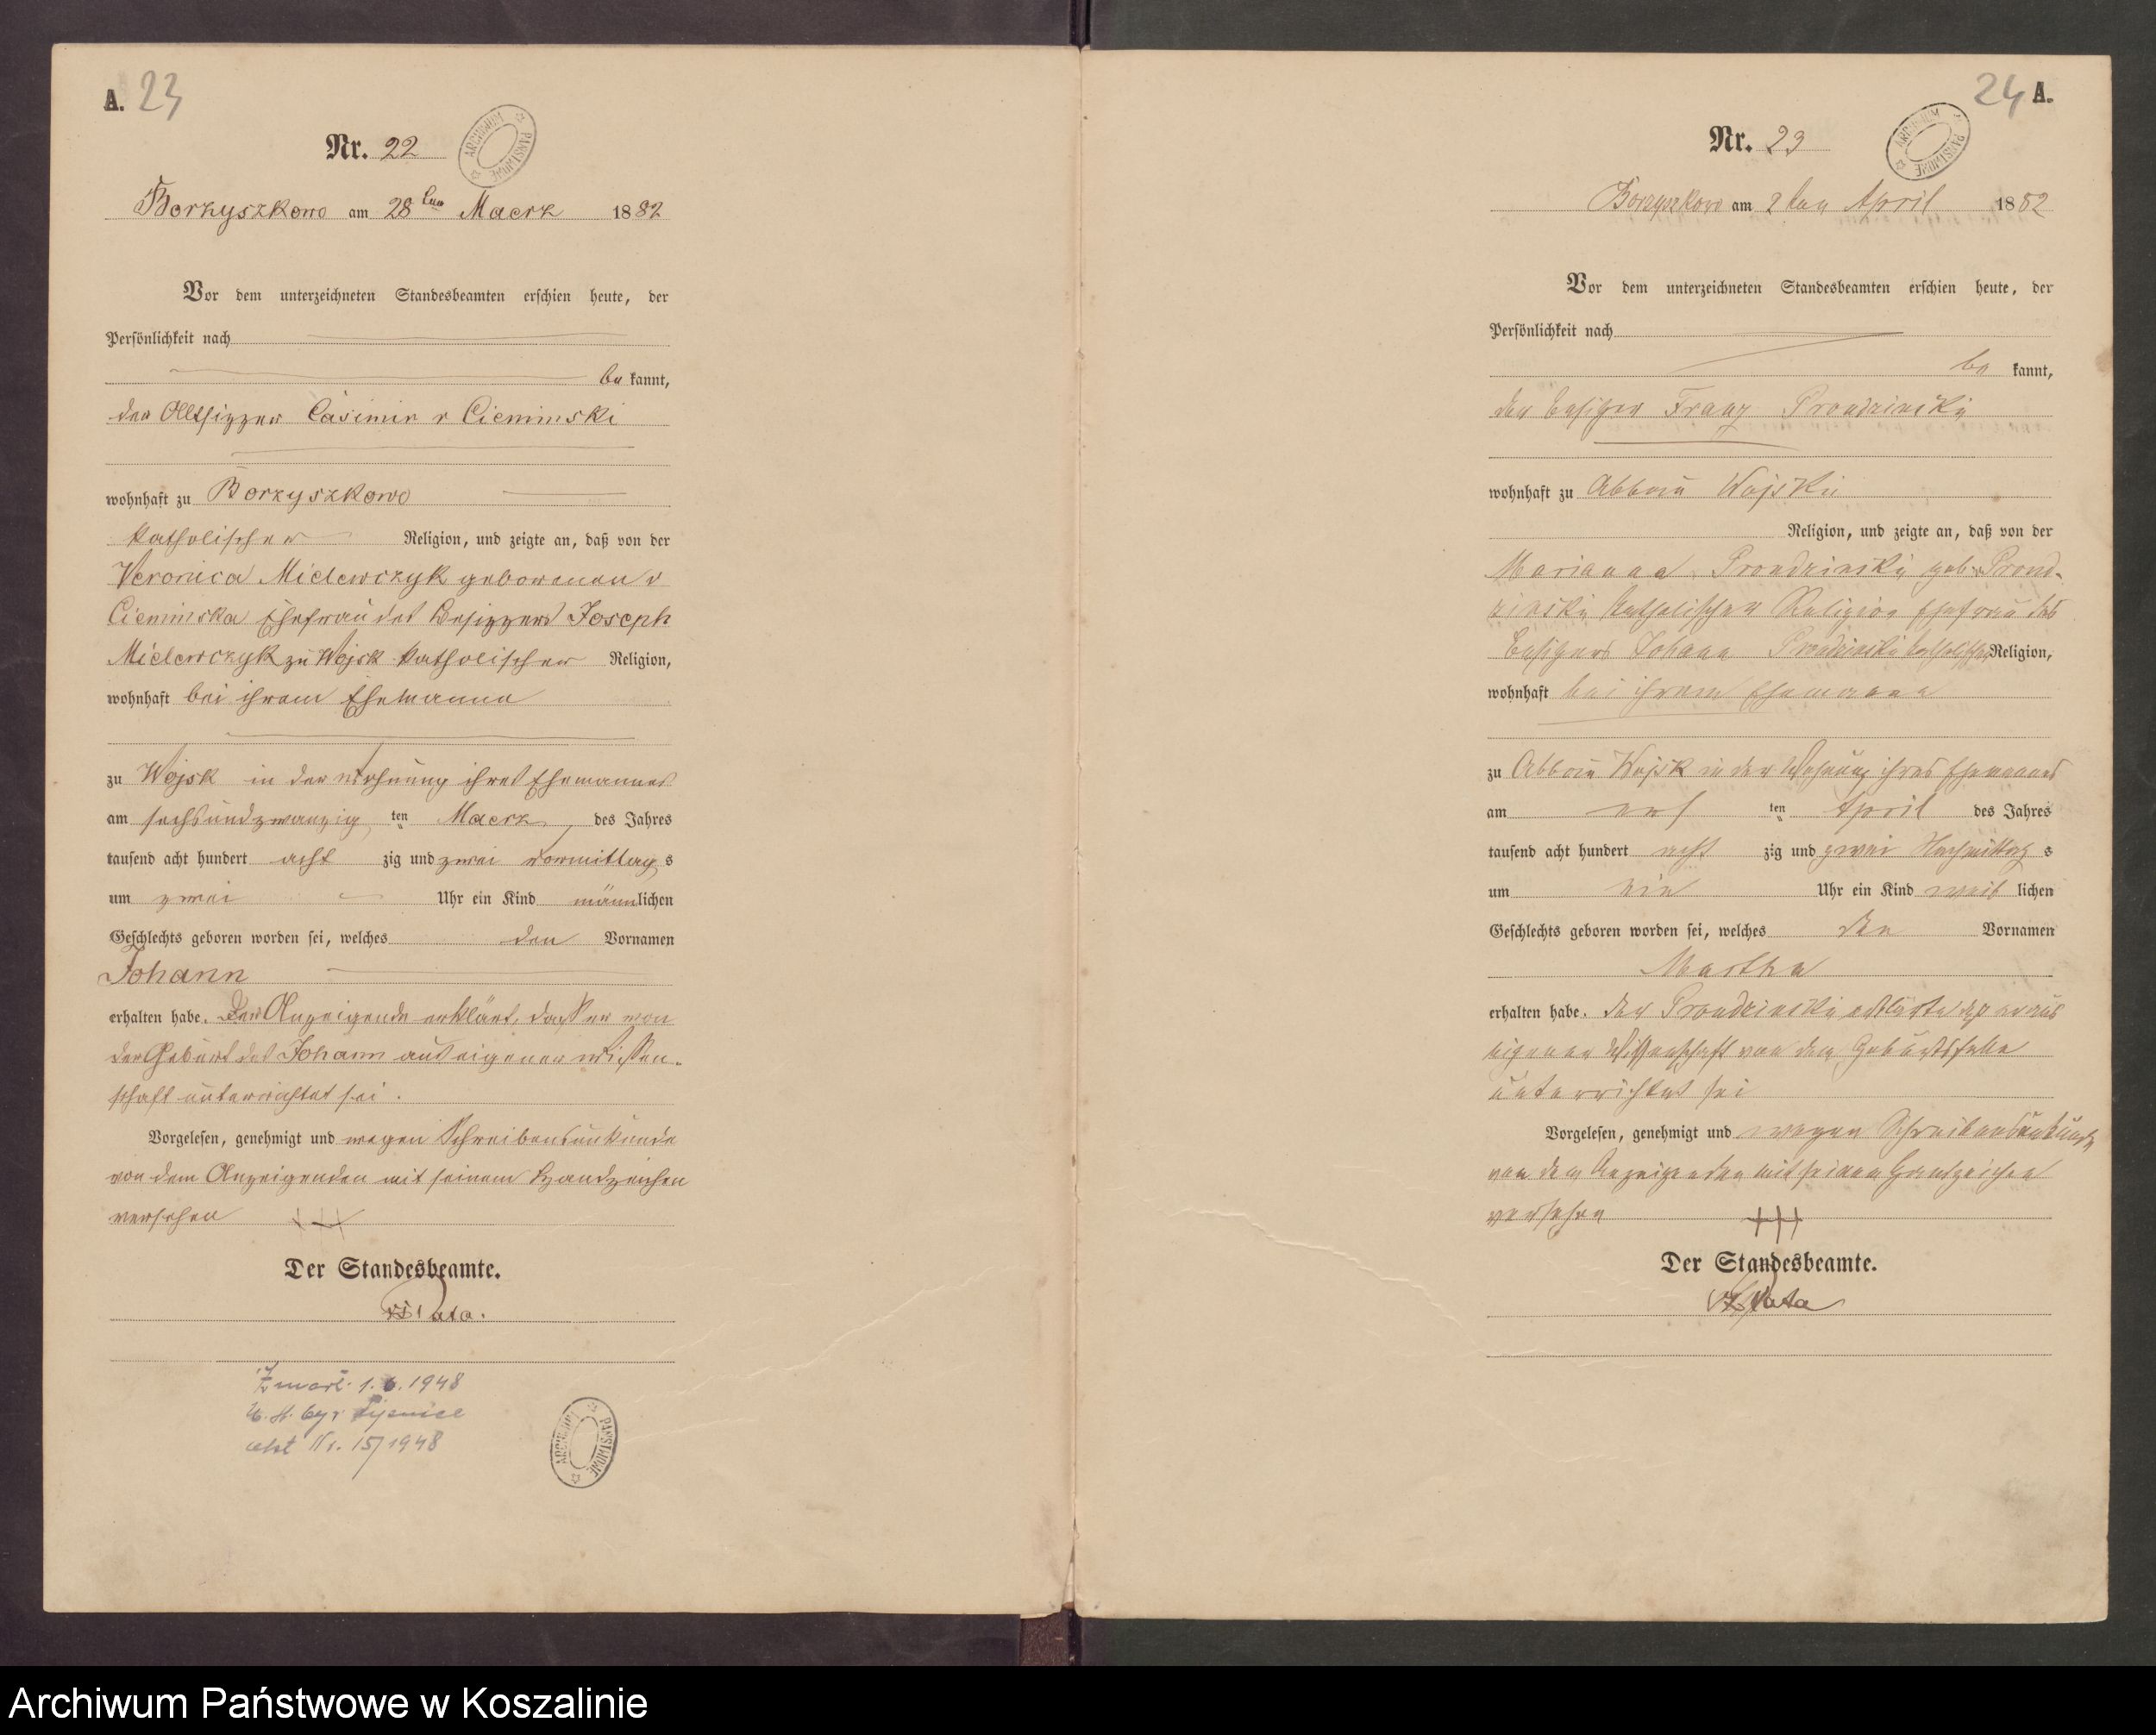 A. 23
Nr. 22
ARCHIWUM PAŃSTWOWE
Borzyszkowo am 28ten Maerz 1882
Vor dem unterzeichneten Standesbeamten erschien heute, der
Persönlichkeit nach
be kannt,
der Altsizzer Casimir v Cieminski
wohnhaft zu Borzyszkowo
katholischer Religion, und zeigte an, daß von der
Veronica Mielewczyk geborenen v
Cieminska Ehefrau des Besizzers Joseph
Mielewczyk zu Wojsk katholischer Religion,
wohnhaft bei ihrem Ehemanne
zu Wojsk in der Wohnung ihres Ehemannes
am sechsundzwanzig ten Maerz des Jahres
tausend acht hundert acht zig und zwei vormittag s
um zwei Uhr ein Kind männlichen
Geschlechts geboren worden sei, welches den Vornamen
Johann
erhalten habe. Der Anzeigende erklärt, dass er von
der Geburt des Johann aus eigener Wissen-
schaft unterrichtet sei.
Vorgelesen, genehmigt und wegen Schreibensunkunde
von dem Anzeigenden mit seinem Handzeichen
versehen +++
Der Standesbeamte.
Zmarł 1.6.1948
akt Nr. 15/1948
ARCHIWUM PAŃSTWOWE
24 A.
Nr. 23
ARCHIWUM PAŃSTWOWE
Borzyszkowo am 2ten April 1882
Vor dem unterzeichneten Standesbeamten erschien heute, der
Persönlichkeit nach
be kannt,
der Besitzer Franz Prondzinski
wohnhaft zu Abbau Wojsk
Religion, und zeigte an, daß von der
Marianna Prondzinski geb. Prond-
zinski katholischer Religion Ehefrau des
Besitzers Johann Prondzinski katholischer Religion,
wohnhaft bei ihrem Ehemanne
zu Abbau Wojsk in der Wohnung ihres Ehemannes
am ers ten April des Jahres
tausend acht hundert acht zig und zwei Nachmittag s
um ein Uhr ein Kind weib lichen
Geschlechts geboren worden sei, welches den Vornamen
Martha
erhalten habe. der Prondzinski erklärte daß er aus
eigener Wissenschaft von dem Geburtsfalle
unterrichtet sei
Vorgelesen, genehmigt und wegen Schreibensunkunde
von dem Anzeigenden mit seinem Handzeichen
versehen +++
Der Standesbeamte.
Archiwum Państwowe w Koszalinie